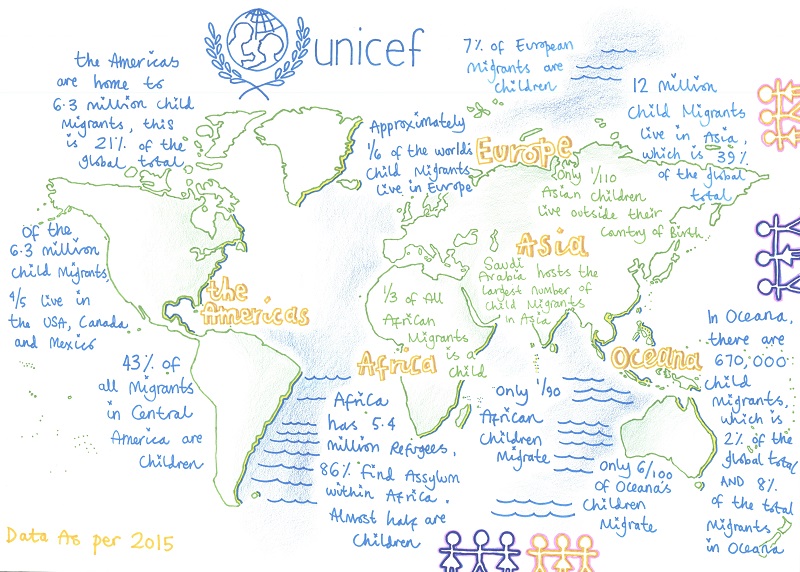 unicef
the Americas
are home to
6.3 million child
Migrants, this
is 21% of the
global total
7% of European
Migrants are
children
12 million
Child Migrants
live in Asia,
which is 39%
of the global
total
Approximately
1/6 of the world's
Child Migrants
live in Europe
Europe
only 1/10
Asian children
live outside their
Country of Birth
Asia
Saudi
Arabia hosts the
largest number of
child Migrants
in Asia
Of the
6.3 million
Child Migrants,
4/5 live in
the USA, Canada
and Mexico
the
Americas
1/3 of All
African
Migrants
is a
child
Africa
Oceana
43% of
all Migrants
in Central
America are
Children
Africa
has 5.4
million Refugees,
86% find Assylum
within Africa.
Almost half are
Children
Only 1/90
African
Children
Migrate
only 6/100
of Oceana's
Children
Migrate
In Oceana,
there are
670,000
child
Migrants,
which is
2% of the
global total
AND 8%
of the total
Migrants
in Oceana
Data As per 2015